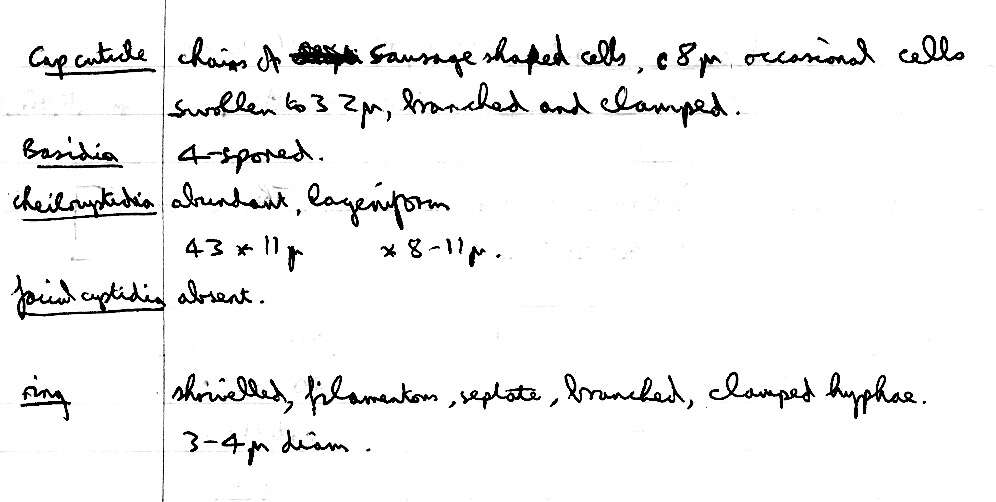 Cap cuticle chains of sausage shaped cells, c 8μ, occasional cells
swollen to 32μ, branched and clamped.
Basidia 4-spored.
cheilocystidia abundant, lageniform
43 × 11μ × 8-11μ.
facial cystidia absent.
ring shrivelled, filamentous, septate, branched, clamped hyphae.
3-4μ diam.